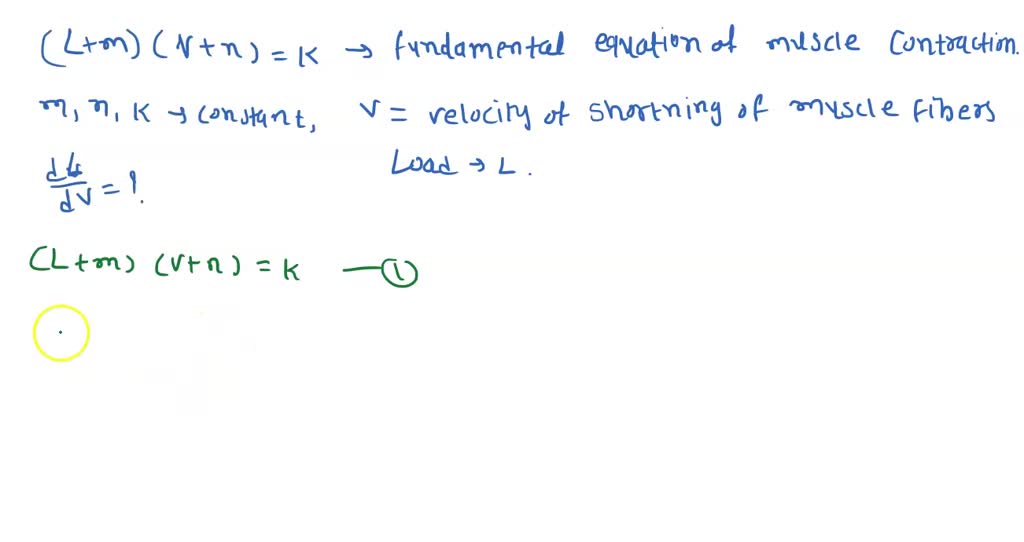 (L+m) (V+n) = K → fundamental equation of muscle Contraction.
m, n, K → constant, V = velocity of shortning of muscle fibers
dL/dV = ? Load → L.
(L+m) (V+n) = K —①